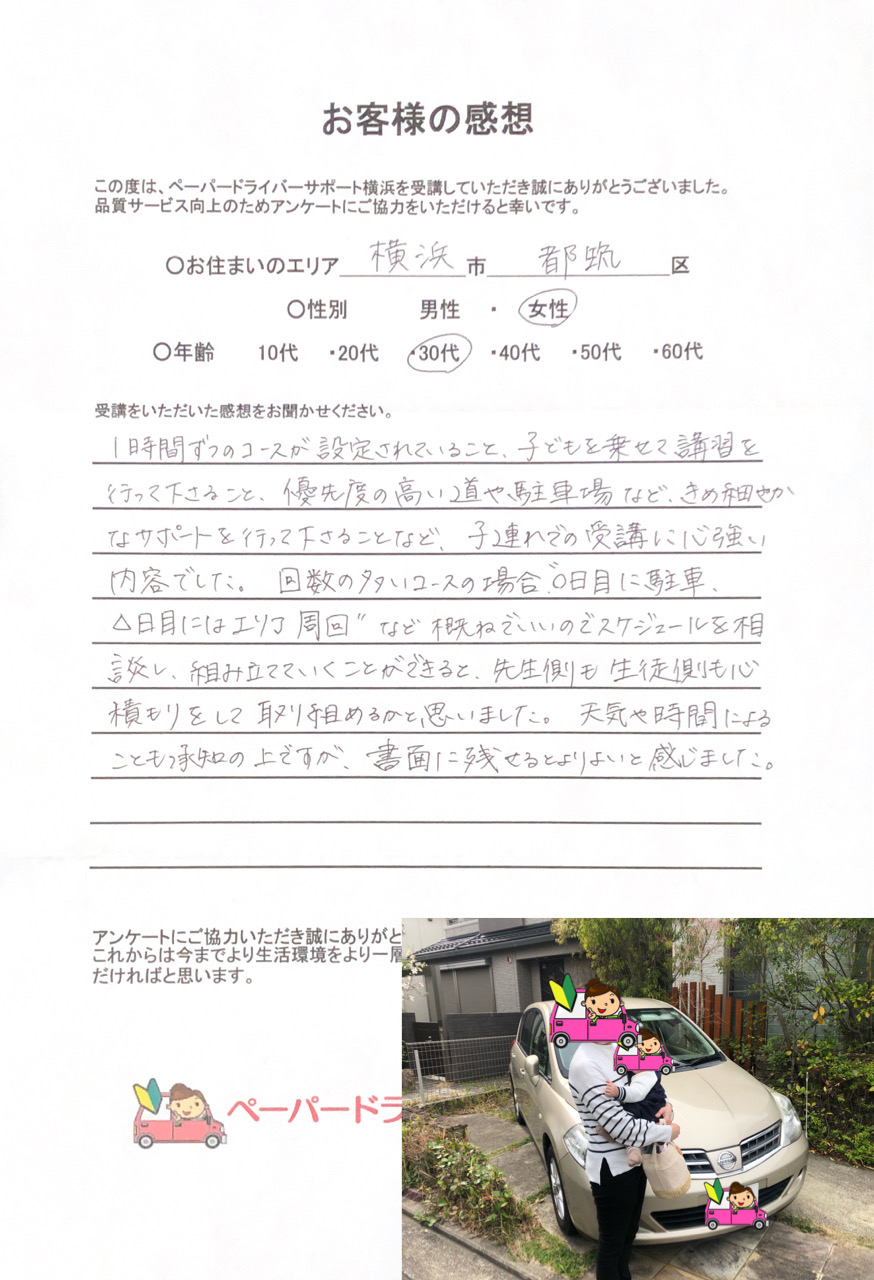 お客様の感想
この度は、ペーパードライバーサポート横浜を受講していただき誠にありがとうございました。
品質サービス向上のためアンケートにご協力をいただけると幸いです。
〇お住まいのエリア 横浜 市 都筑 区
〇性別 男性 ・ 女性
〇年齢 10代 ・20代 ・30代 ・40代 ・50代 ・60代
受講をいただいた感想をお聞かせください。
1時間ずつのコースが設定されていること、子どもを乗せて講習を
行って下さること、優先度の高い道や駐車場など、きめ細やか
なサポートを行って下さることなど、子連れでの受講に心強い
内容でした。 回数の多いコースの場合、"〇日目に駐車、
△日目にはエリア周回"など概ねでいいのでスケジュールを相
談し、組み立てていくことができると、先生側も生徒側も心
積もりをして取り組めるかと思いました。 天気や時間による
ことも承知の上ですが、書面に残せるとよりよいと感じました。
アンケートにご協力いただき誠にありがと
これからは今までより生活環境をより一層
だければと思います。
ペーパードラ